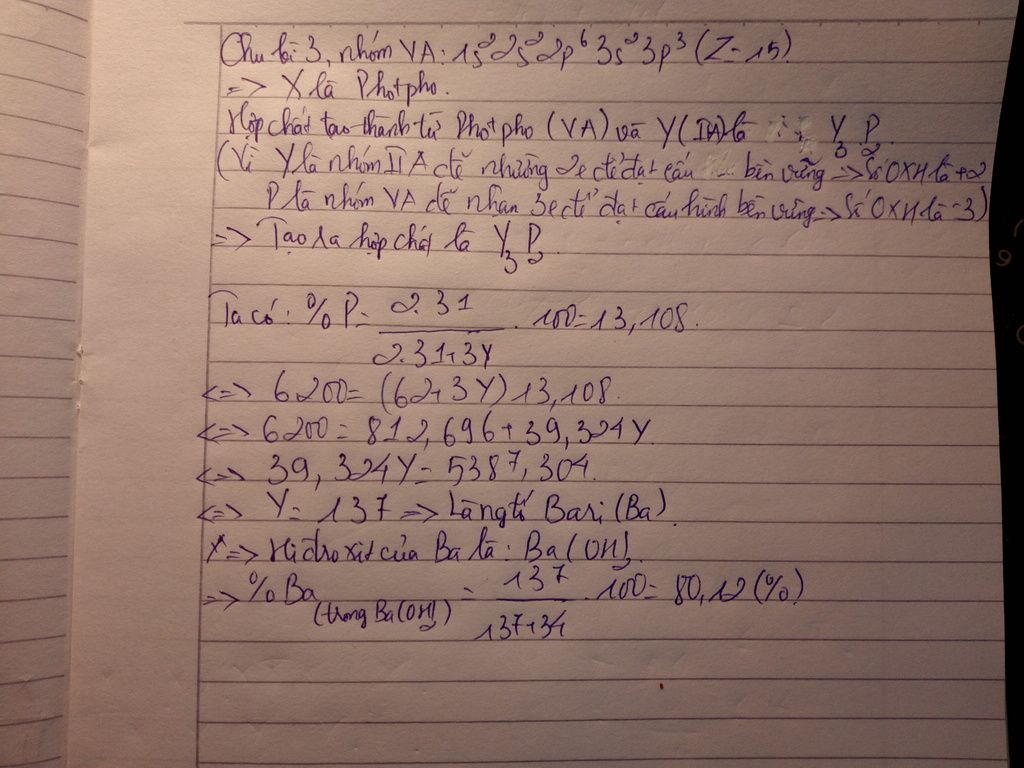 Chu kì 3, nhóm VA: 1s²2s²2p⁶3s²3p³ (Z=15)
=> X là Photpho.
Hợp chất tạo thành từ Photpho (VA) và Y (IIA) là Y₃P₂
(Vì Y là nhóm IIA dễ nhường 2e để đạt cấu bền vững => Số OXH là +2
P là nhóm VA dễ nhận 3e để đạt cấu hình bền vững => Số OXH là -3)
=> Tạo ra hợp chất là Y₃P₂
Ta có: %P = 2.31 / (2.31+3Y) . 100 = 13,108.
<=> 6200 = (62+3Y)13,108.
<=> 6200 = 812,696 + 39,324Y
<=> 39,324Y = 5387,304.
<=> Y = 137 => Là ngtố Bari (Ba)
* => Hiđroxit của Ba là: Ba(OH)₂
=> %Ba (trong Ba(OH)₂) = 137 / (137+34) . 100 = 80,12 (%)